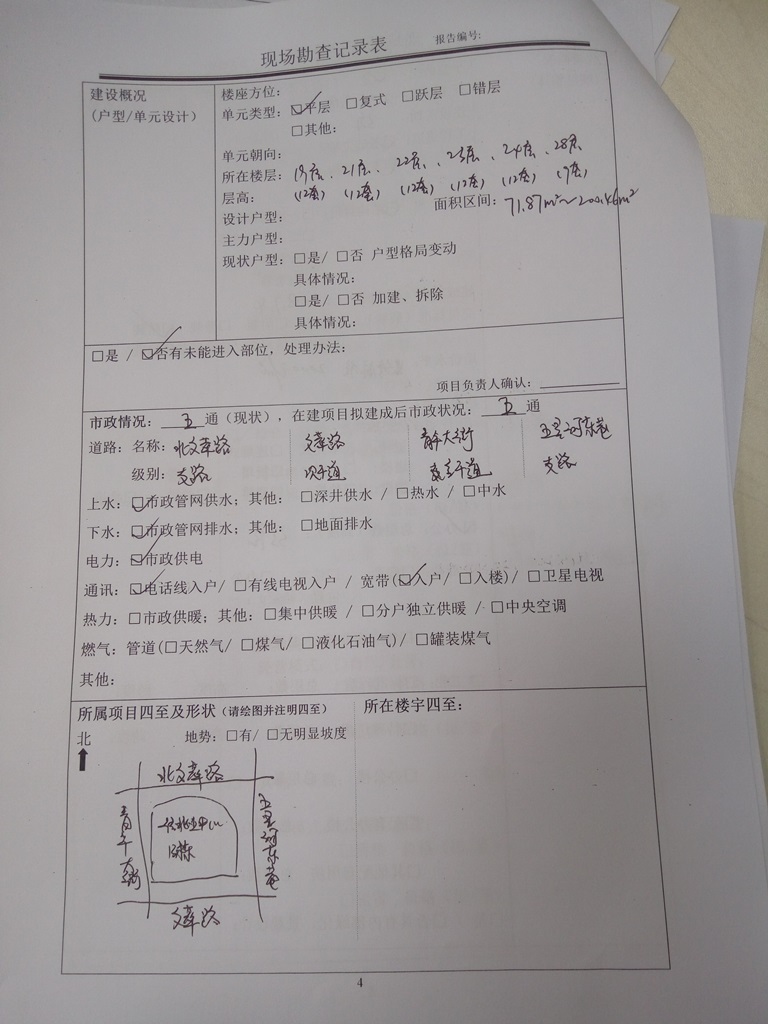 现场勘查记录表
报告编号:
建设概况
(户型/单元设计)
楼座方位:
单元类型: ☑平层 □复式 □跃层 □错层
□其他:
单元朝向:
所在楼层: 19层、21层、22层、23层、24层、28层
层高: (12套) (12套) (12套) (12套) (12套) (9套)
设计户型:
面积区间: 71.87m²~200.46m²
主力户型:
现状户型: □是/ □否 户型格局变动
具体情况:
□是/ □否 加建、拆除
具体情况:
□是 / ☑否有未能进入部位, 处理办法:
项目负责人确认:
市政情况: 五 通 (现状), 在建项目拟建成后市政状况: 五 通
道路: 名称: 北文萃路 文萃路 青年大街 五里河东巷
级别: 支路 次干道 干道 支路
上水: ☑市政管网供水; 其他: □深井供水 / □热水 / □中水
下水: ☑市政管网排水; 其他: □地面排水
电力: ☑市政供电
通讯: ☑电话线入户/ □有线电视入户 / 宽带(☑入户/ □入楼)/ □卫星电视
热力: □市政供暖; 其他: □集中供暖 / □分户独立供暖 / □中央空调
燃气: 管道(□天然气/ □煤气/ □液化石油气)/ □罐装煤气
其他:
所属项目四至及形状 (请绘图并注明四至)
北
地势: □有/ □无明显坡度
北文萃路
青年大街
五里河东巷
文萃路
所在楼宇四至:
4